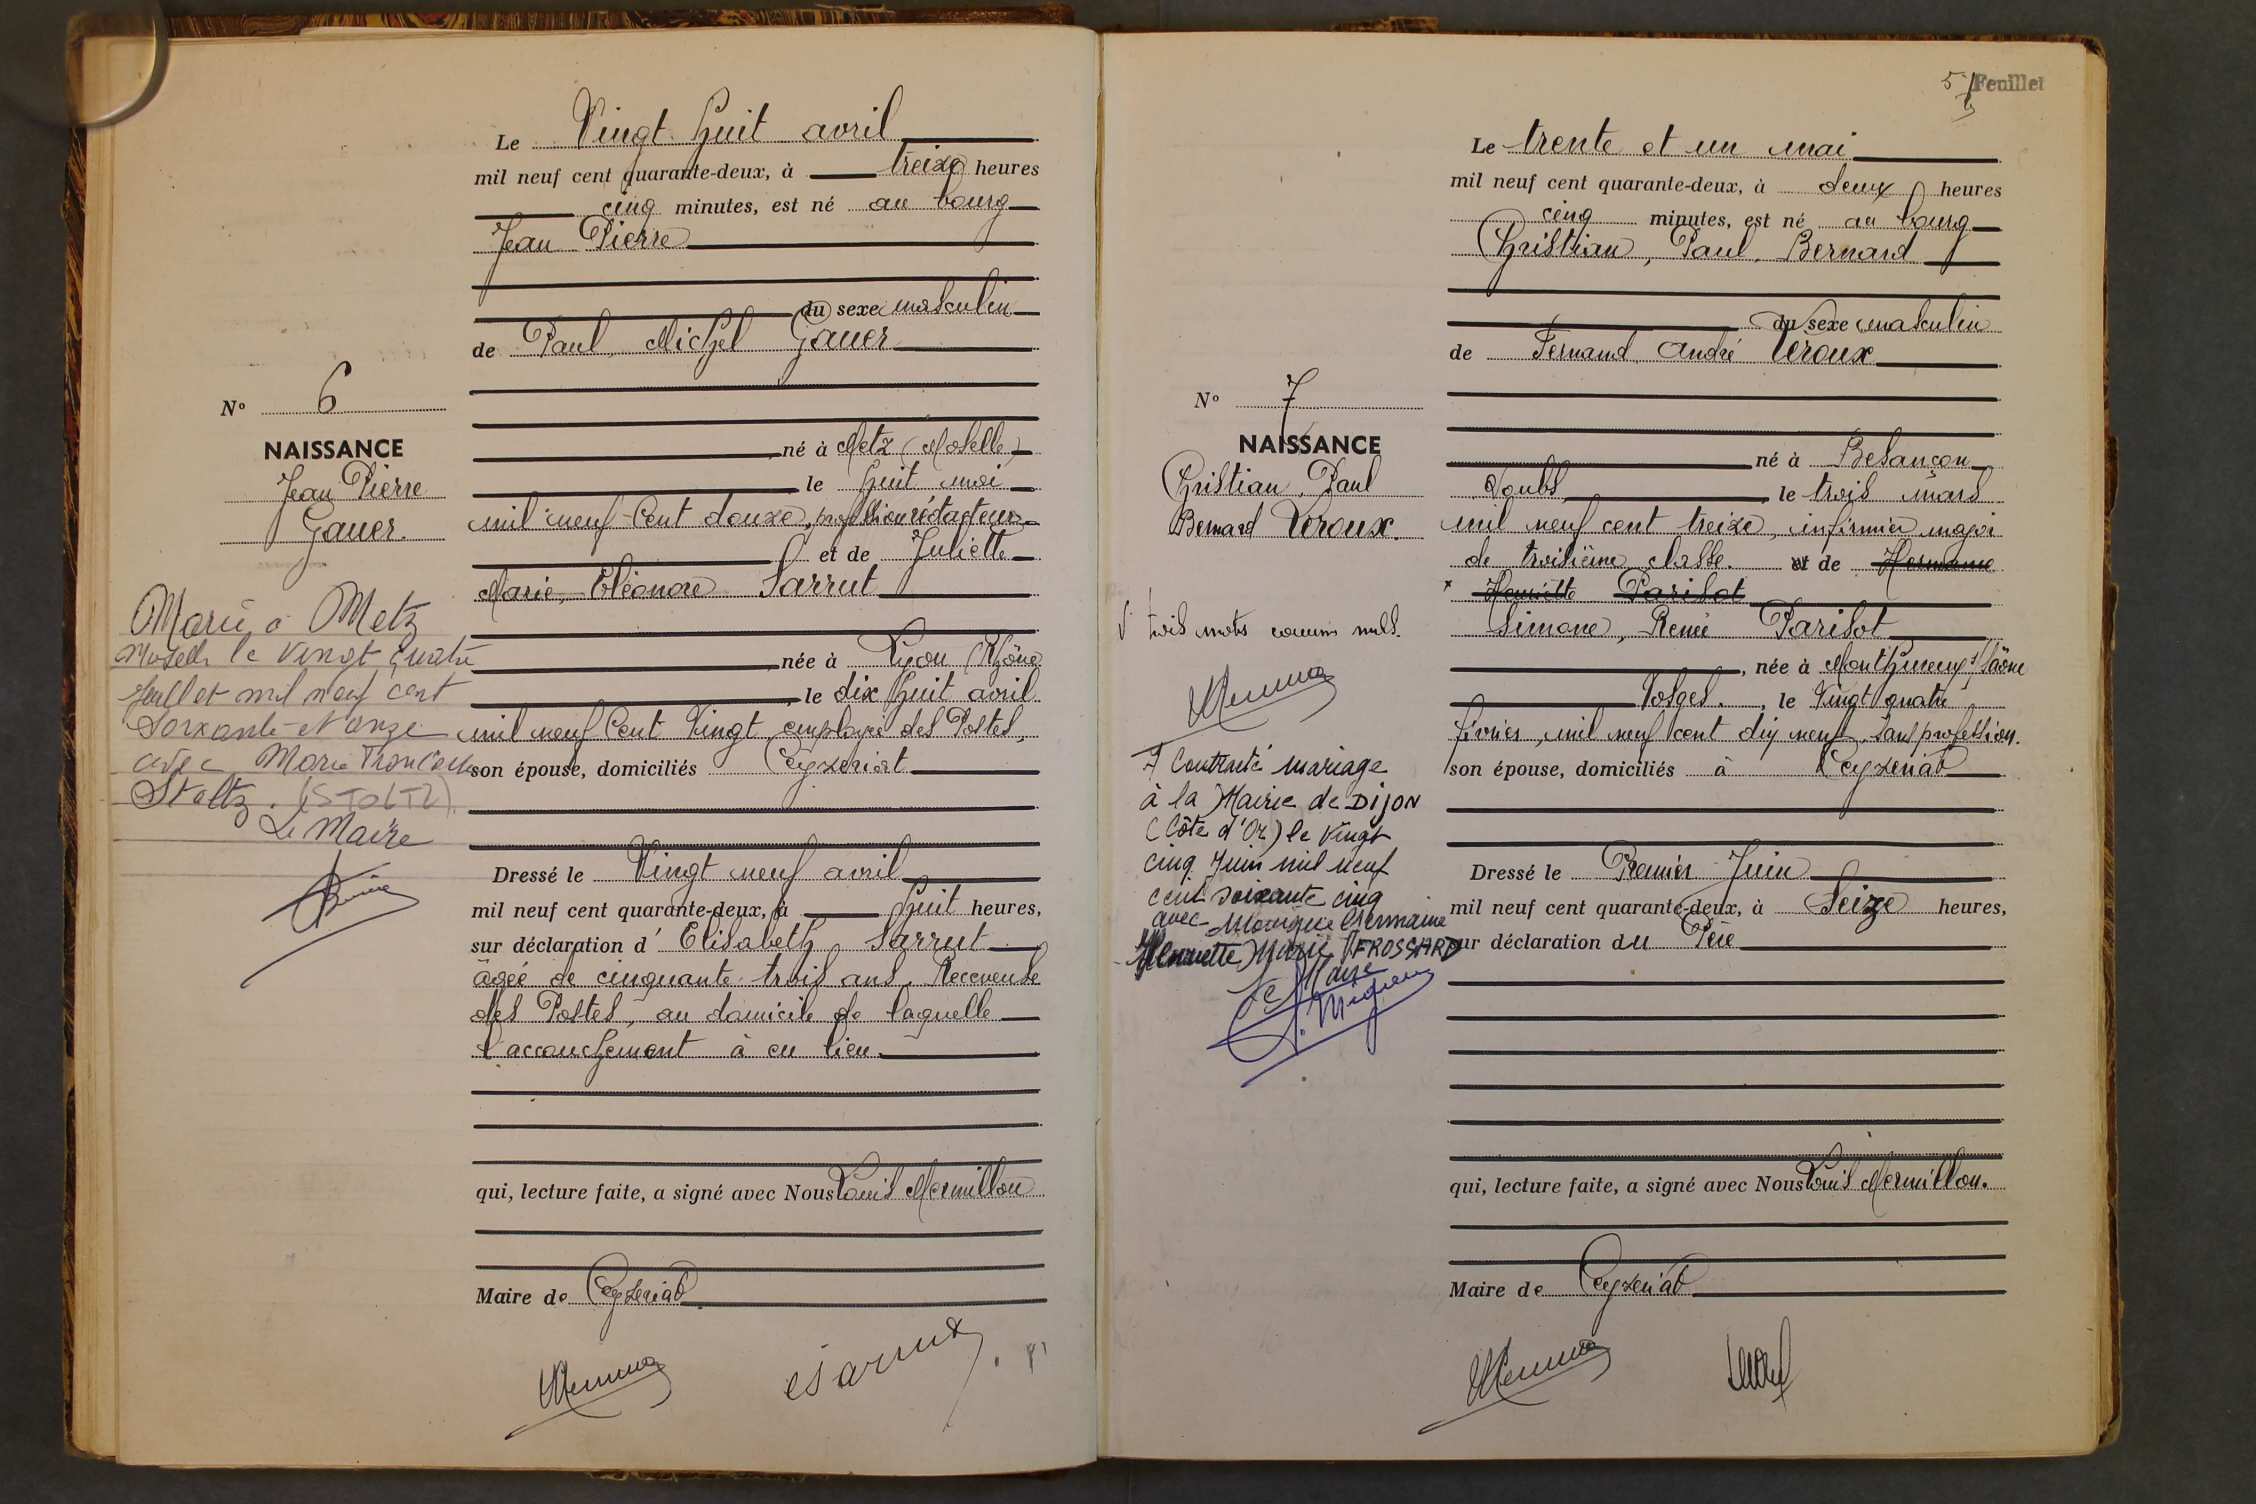 Le Vingt huit avril
mil neuf cent quarante-deux, à treize heures
cinq minutes, est né au bourg
Jean Pierre
du sexe masculin
de Paul, Michel Gauer
né à Metz (Moselle)
le huit mai
mil neuf cent douze, profession rédacteur
et de Juliette
Marie, Eléonore Sarrut
née à Lyon (Rhône
le dix huit avril
mil neuf cent vingt, employée des Postes,
son épouse, domiciliés Ceyzeriat
Dressé le Vingt neuf avril
mil neuf cent quarante-deux, à huit heures,
sur déclaration d' Elisabeth Sarrut
âgée de cinquante trois ans, Receveuse
des Postes, au domicile de laquelle
l'accouchement à eu lieu
qui, lecture faite, a signé avec Nous Louis Mermillon
Maire de Ceyzeriat
N° 6
NAISSANCE
Jean Pierre
Gauer.
Marié à Metz
Moselle le vingt quatre
Juillet mil neuf cent
Soixante et onze
avec Marie Françoise
Stoltz. (STOLTZ).
Le Maire
57 Feuillet
Le trente et un mai
mil neuf cent quarante-deux, à deux heures
cinq minutes, est né au bourg
Christian, Paul, Bernard
du sexe masculin
de Fernand André Leroux
né à Besançon
Doubs le trois mars
mil neuf cent treize, infirmier major
de troisième classe. et de Hermance
x Henriette Parisot
Simone, René Parisot
née à Monthureux s/ Saône
Vosges. , le Vingt quatre
février, mil neuf cent dix neuf, sans profession.
son épouse, domiciliés à Ceyzeriat
Dressé le Premier Juin
mil neuf cent quarante-deux, à Seize heures,
sur déclaration du Père
qui, lecture faite, a signé avec Nous Louis Mermillon.
Maire de Ceyzeriat
N° 7
NAISSANCE
Christian, Paul
Bernard Leroux.
trois mots comme nuls.
A Contracté mariage
à la Mairie de DIJON
(Côte d'Or) le vingt
cinq Juin mil neuf
cent soixante cinq
avec Monique Germaine
Henriette Marie FROSSARD
Le Maire